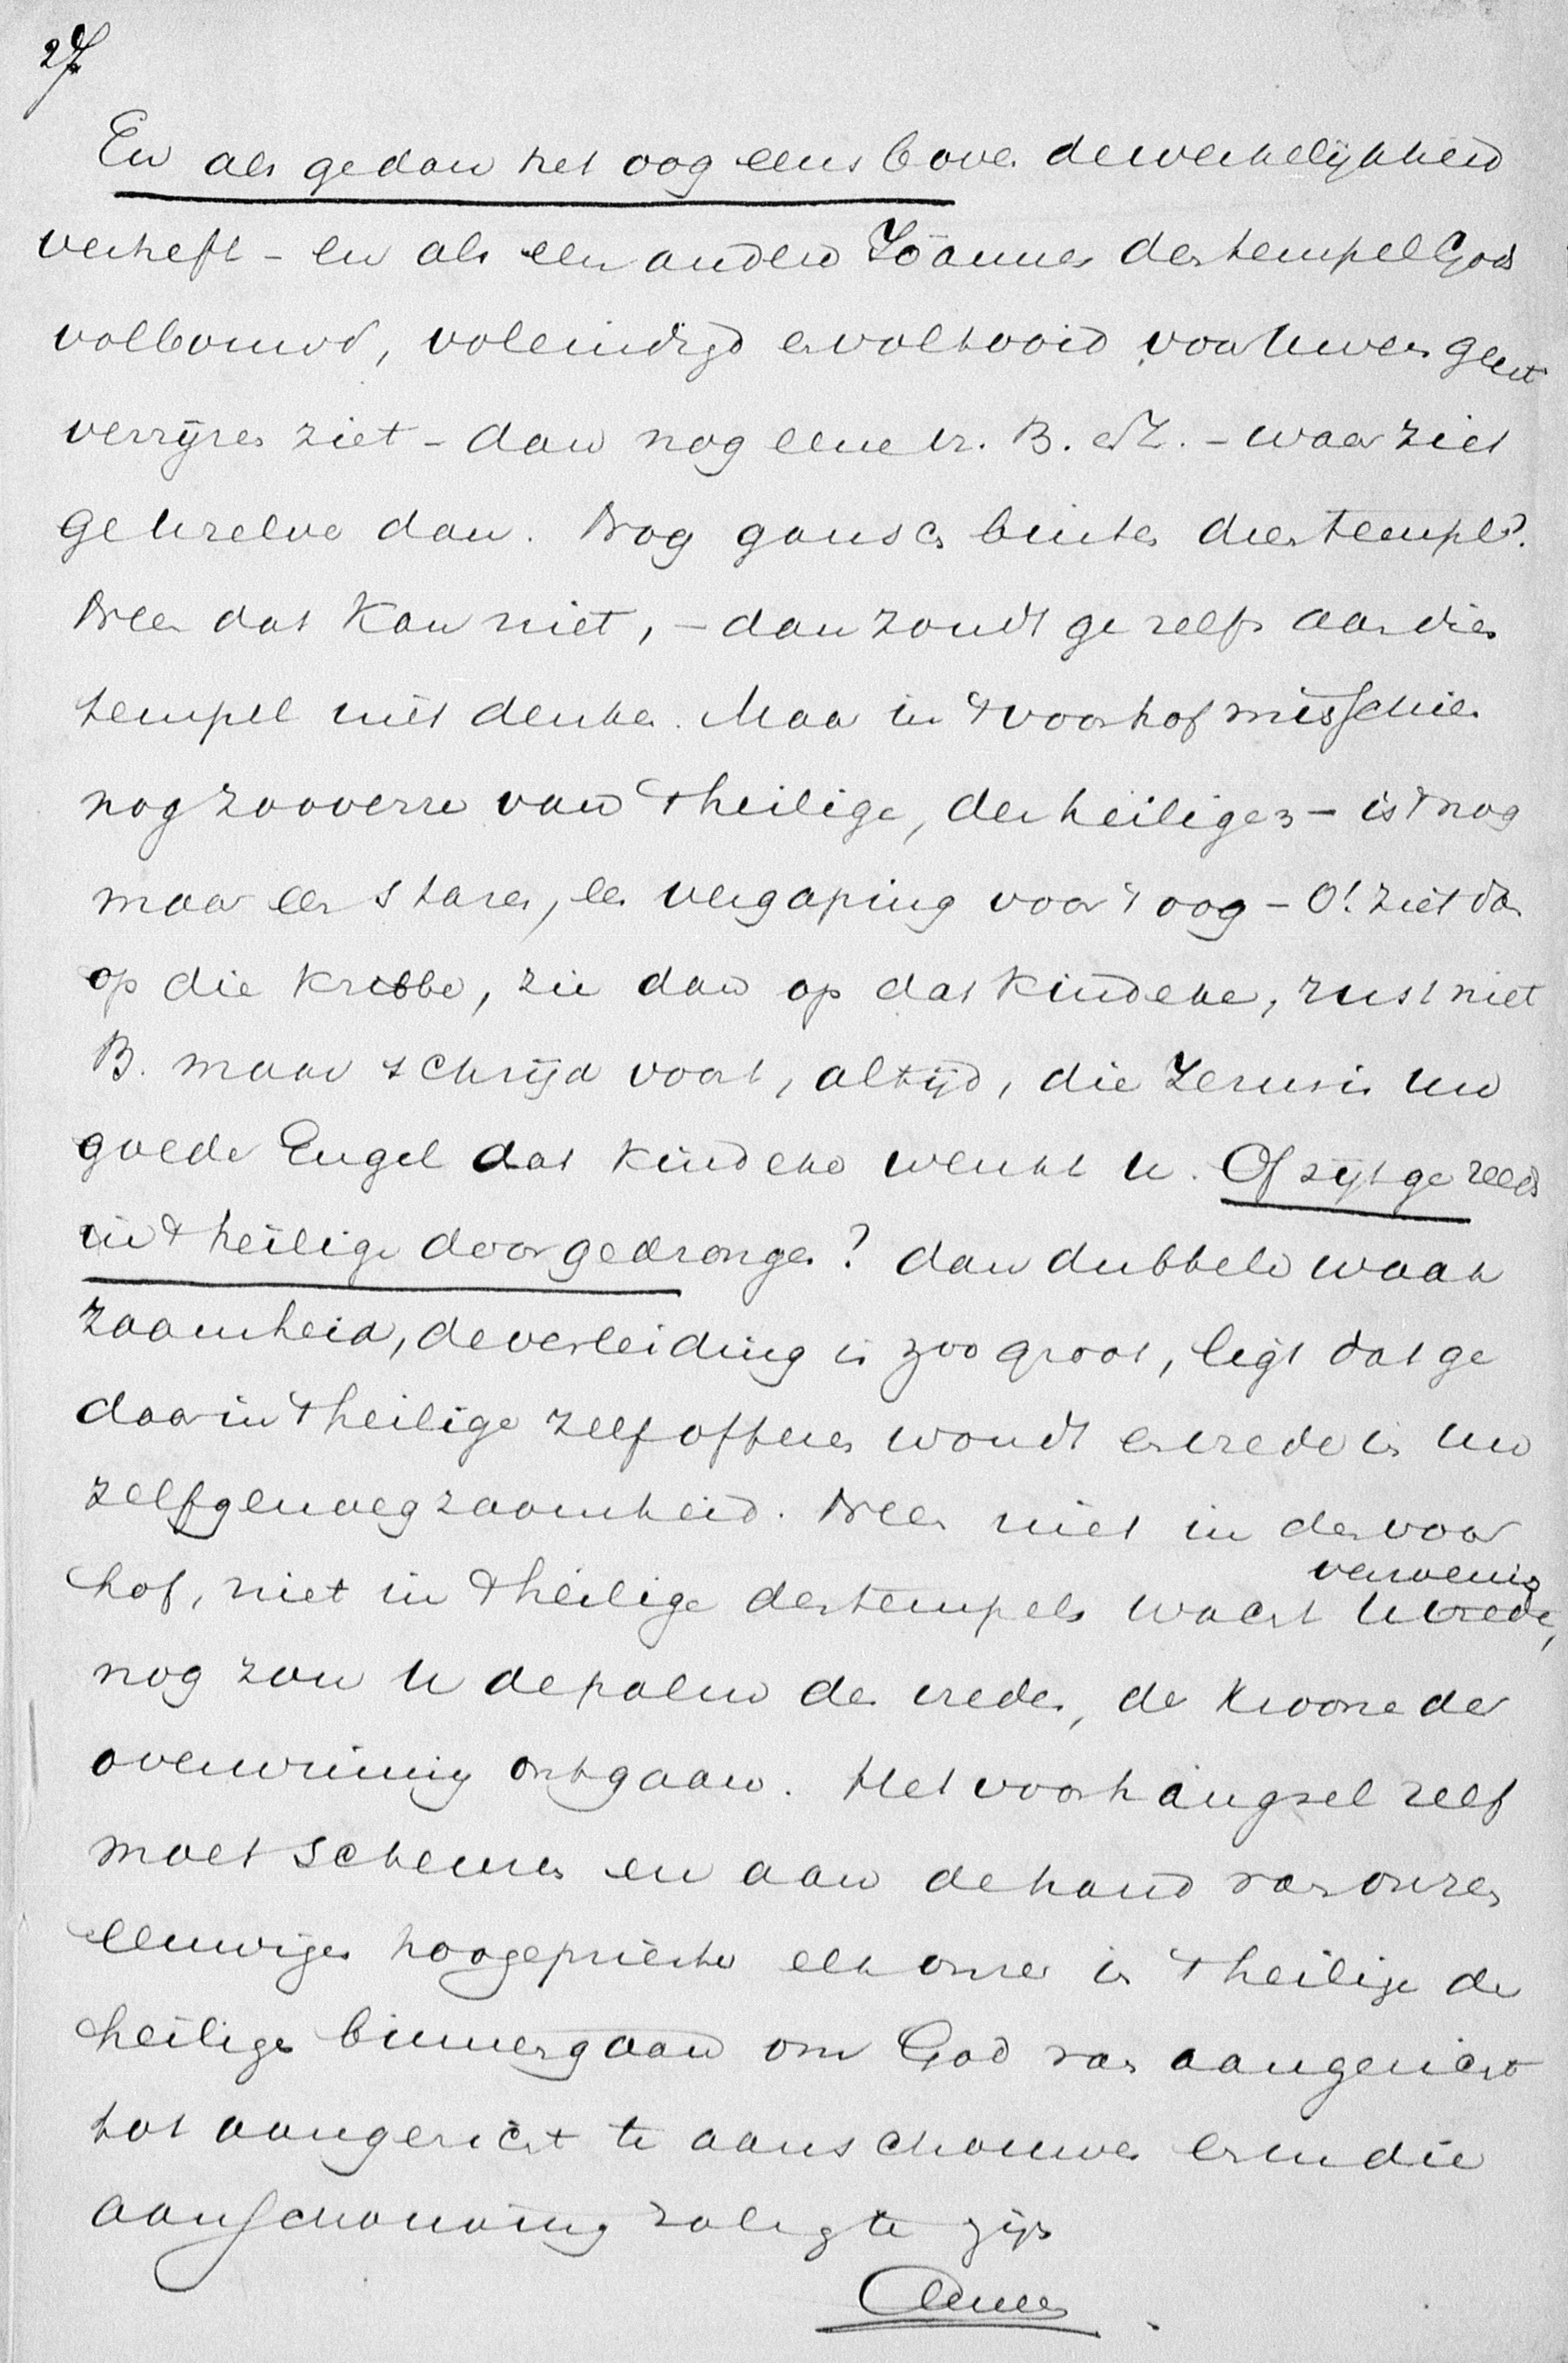 27
En als ge dan het oog eens boven de werkelijkheid
verheft - en als een anderen Joannes den tempel Gods
volbouwd, voleindigd en voltooid voor Uwen geest
verrijzen ziet - dan nog eene vr. B. e Z. - waar ziet
ge Uzelve dan. Nog gansch buiten dien tempel?
Neen dat kan niet, - dan zoudt ge zelfs aan dien
tempel niet denken. Maar in 't voorhof misschien
nog zooverre van 't heilige, der heiligen - is 't nog
maar een staren, een vergaping voor 't oog - O! ziet dan
op die kribbe, zie dan op dat kindeke, rust niet
B. maar schrijd voort, altijd, die Jezus is uw
goede Engel dat kindeke wenkt U. Of zijt ge reeds
in 't heilige doorgedrongen? dan dubbele waak
zaamheid, de verleiding is zoo groot, ligt dat ge
daar in 't heilige zelf offeren woudt en vrede in uw
zelfgenoegzaamheid. Neen niet in den voor
hof, niet in 't heilige des tempels wacht U vrede,
nog zou U de palm des vredes, de kroone der
overwinning ontgaan. Het voorhangsel zelf
moet scheuren en aan de hand van onzen
eeuwigen hoogepriester elk onzer in 't heilige der
heiligen binnengaan om God van aangericht
tot aangericht te aanschouwen en in die
aanschouwing zalig te zijn
Amen